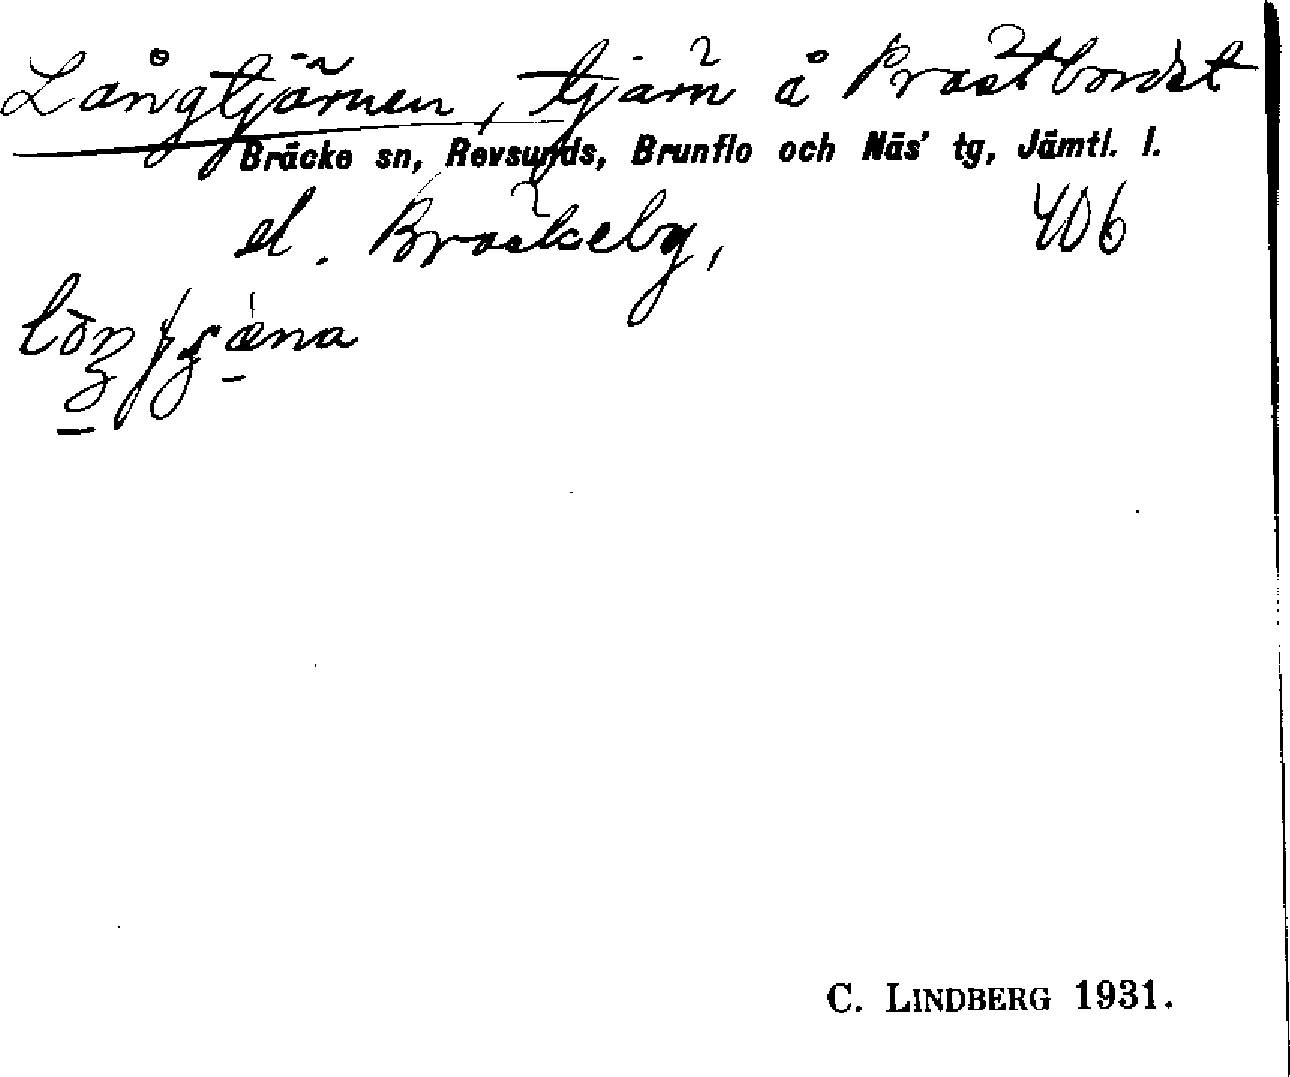 Långtjärnen, tjärn å Prästbordet
Bräcke sn, Revsunds, Brunflo och Näs' tg, Jämtl. l.
el. Bräckeby, 406
C. LINDBERG 1931.